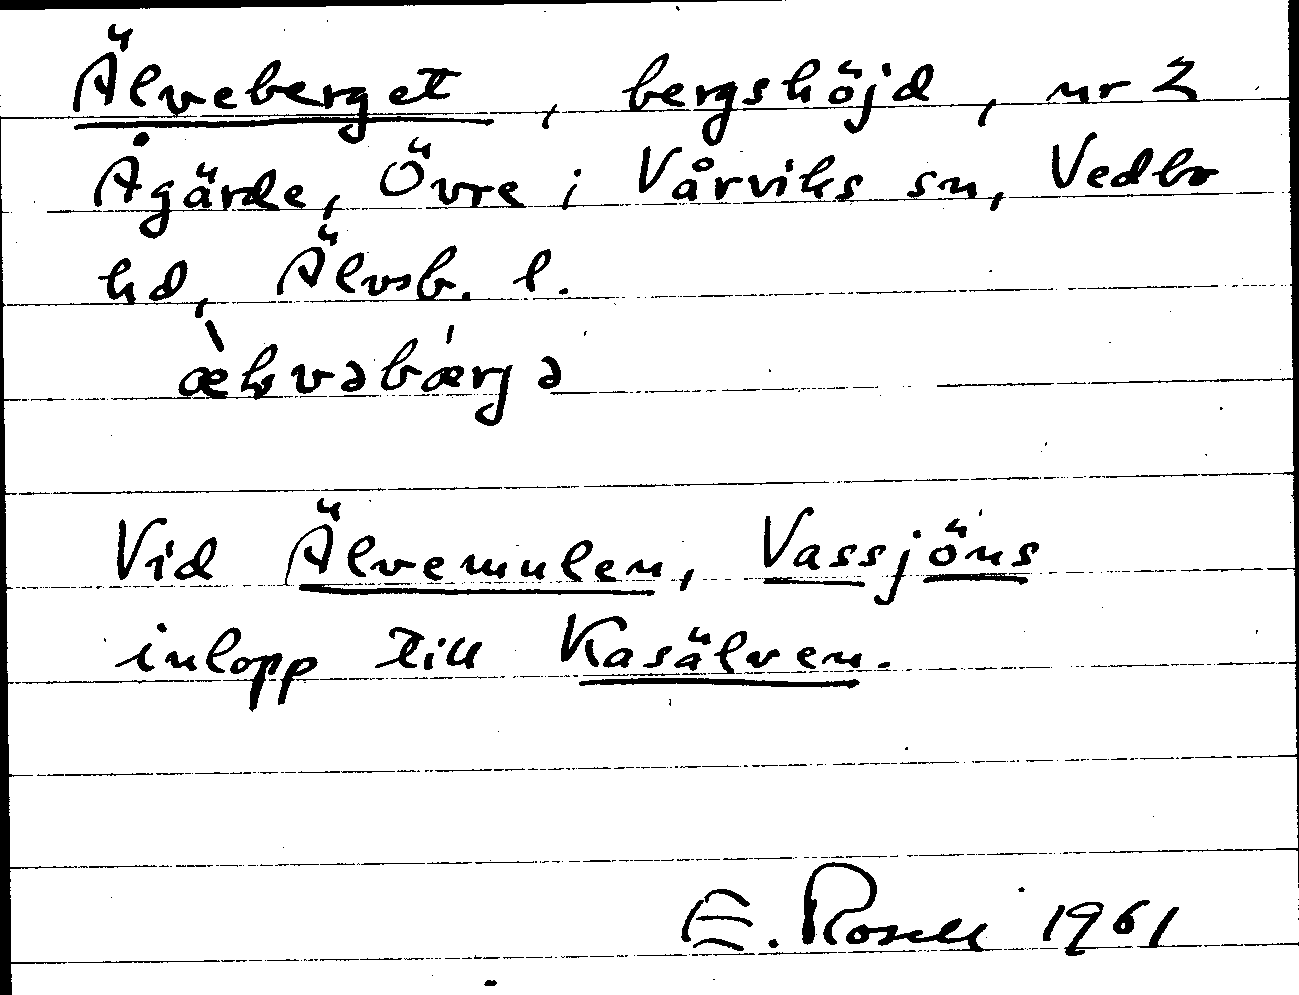 Älveberget, bergshöjd, nr 2
Ågärde, Övre i Vårviks sn, Vedbo
hd, Älvsb. l.
Vid Älvemulen, Vassjöns
inlopp till Kasälven.
E. Rosell 1961